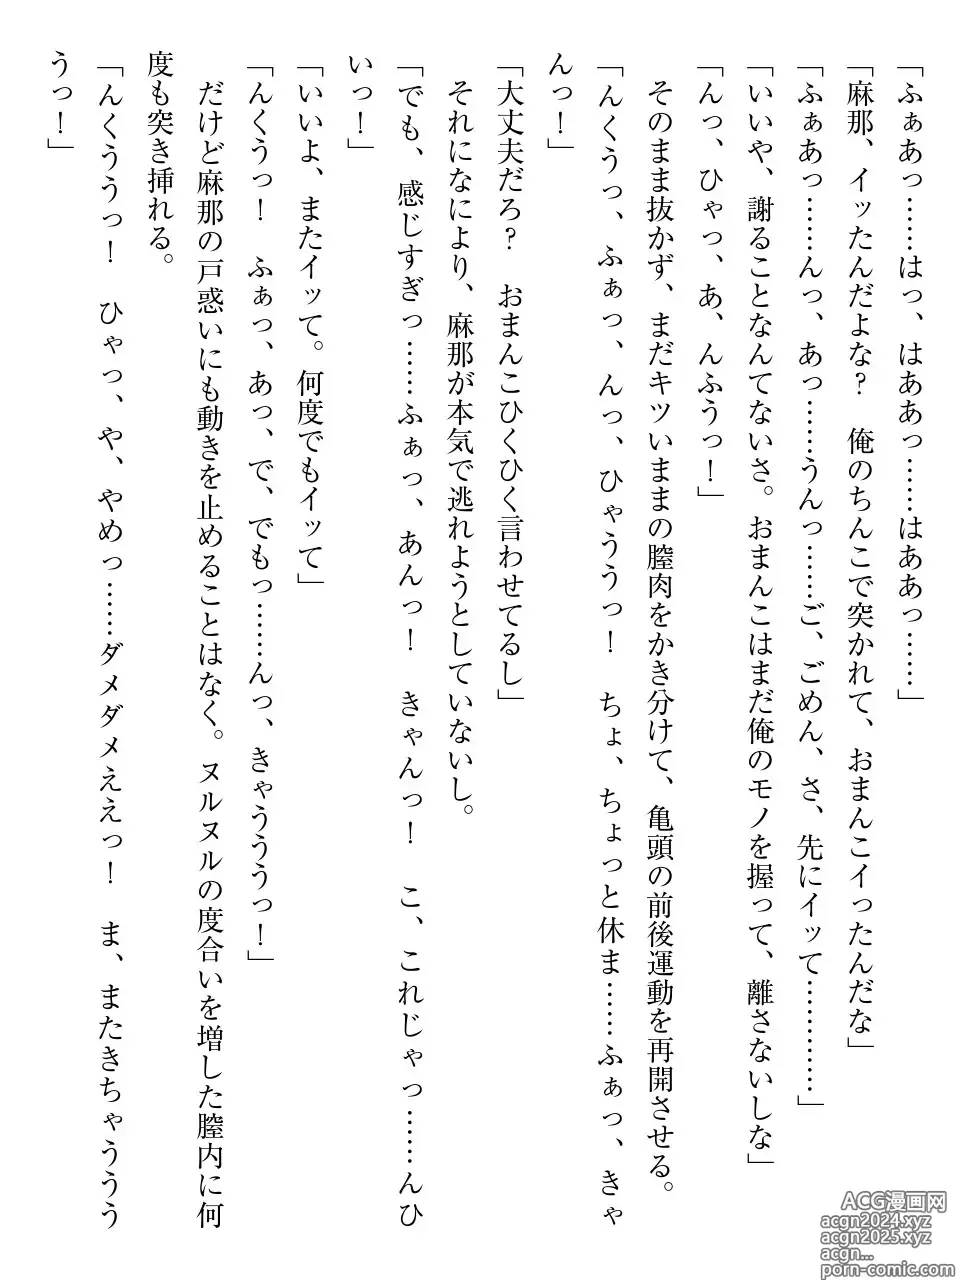 「ふぁあっ……はっ、はああっ……はああっ……」
「麻那、イッたんだよな？　俺のちんこで突かれて、おまんこイったんだな」
「ふぁあっ……んっ、あっ……うんっ……ご、ごめん、さ、先にイッて…………」
「いいや、謝ることなんてないさ。おまんこはまだ俺のモノを握って、離さないしな」
「んっ、ひゃっ、あ、んふうっ！」
　そのまま抜かず、まだキツいままの膣肉をかき分けて、亀頭の前後運動を再開させる。
「んくうっ、ふぁっ、んっ、ひゃううっ！　ちょ、ちょっと休ま……ふぁっ、きゃ
んっ！」
「大丈夫だろ？　おまんこひくひく言わせてるし」
　それになにより、麻那が本気で逃れようとしていないし。
「でも、感じすぎっ……ふぁっ、あんっ！　きゃんっ！　こ、これじゃっ……んひ
いっ！」
「いいよ、またイッて。何度でもイッて」
「んくうっ！　ふぁっ、あっ、で、でもっ……んっ、きゃうううっ！」
　だけど麻那の戸惑いにも動きを止めることはなく。ヌルヌルの度合いを増した膣内に何
度も突き挿れる。
「んくううっ！　ひゃっ、や、やめっ……ダメダメええっ！　ま、またきちゃううう
うっ！」
ACG漫画网
acgn2024.xyz
acgn2025.xyz
acgn...
porn-comic.com